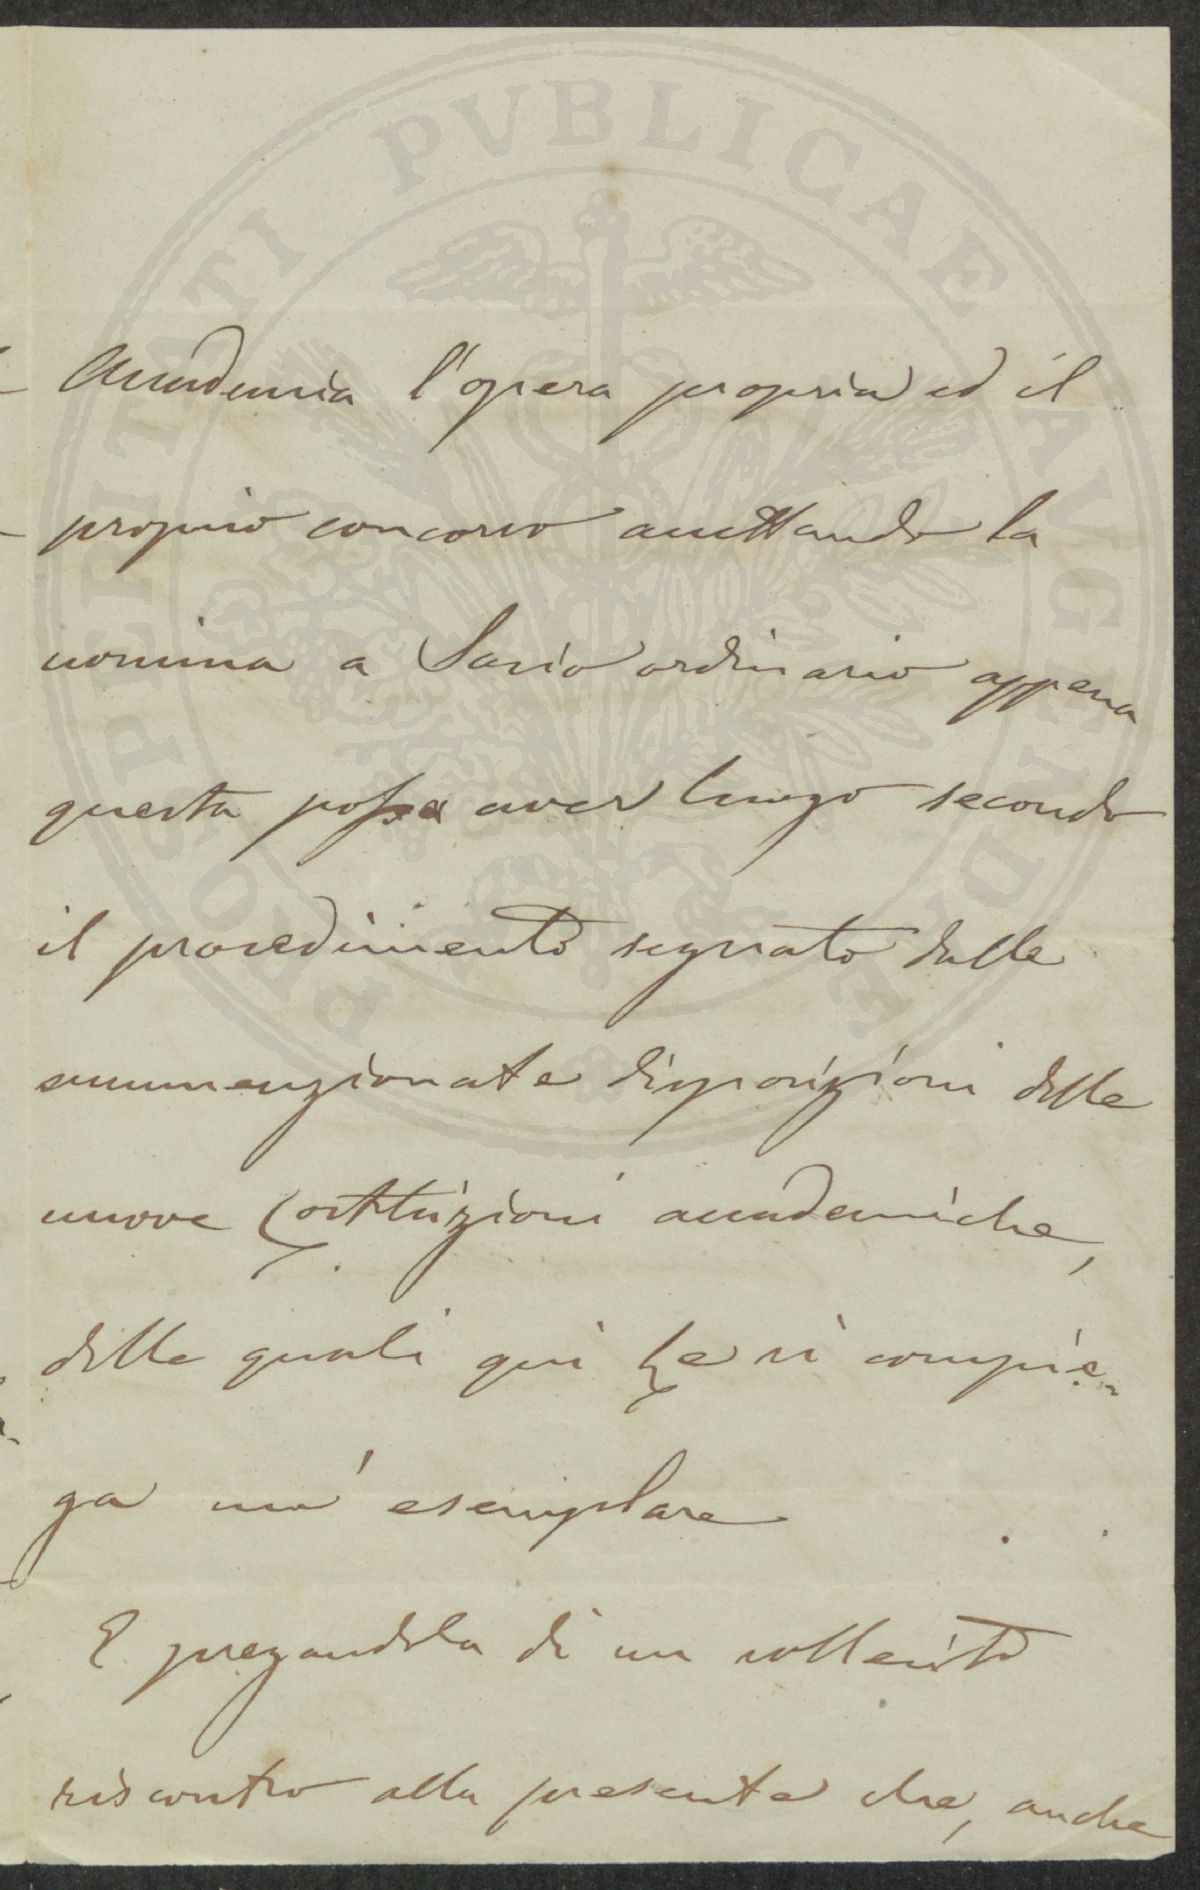 Accademia l'opera propria ed il
proprio concorso accettando la
nomina a Socio ordinario appena
questa possa aver luogo secondo
il procedimento segnato dalle
summenzionate disposizioni delle
nuove Costituzioni accademiche,
delle quali qui Le si compie-
ga un' esemplare
E pregandola di un sollecito
riscontro alla presente che, anche
PROSPERITATI PVBLICAE AVGENDAE